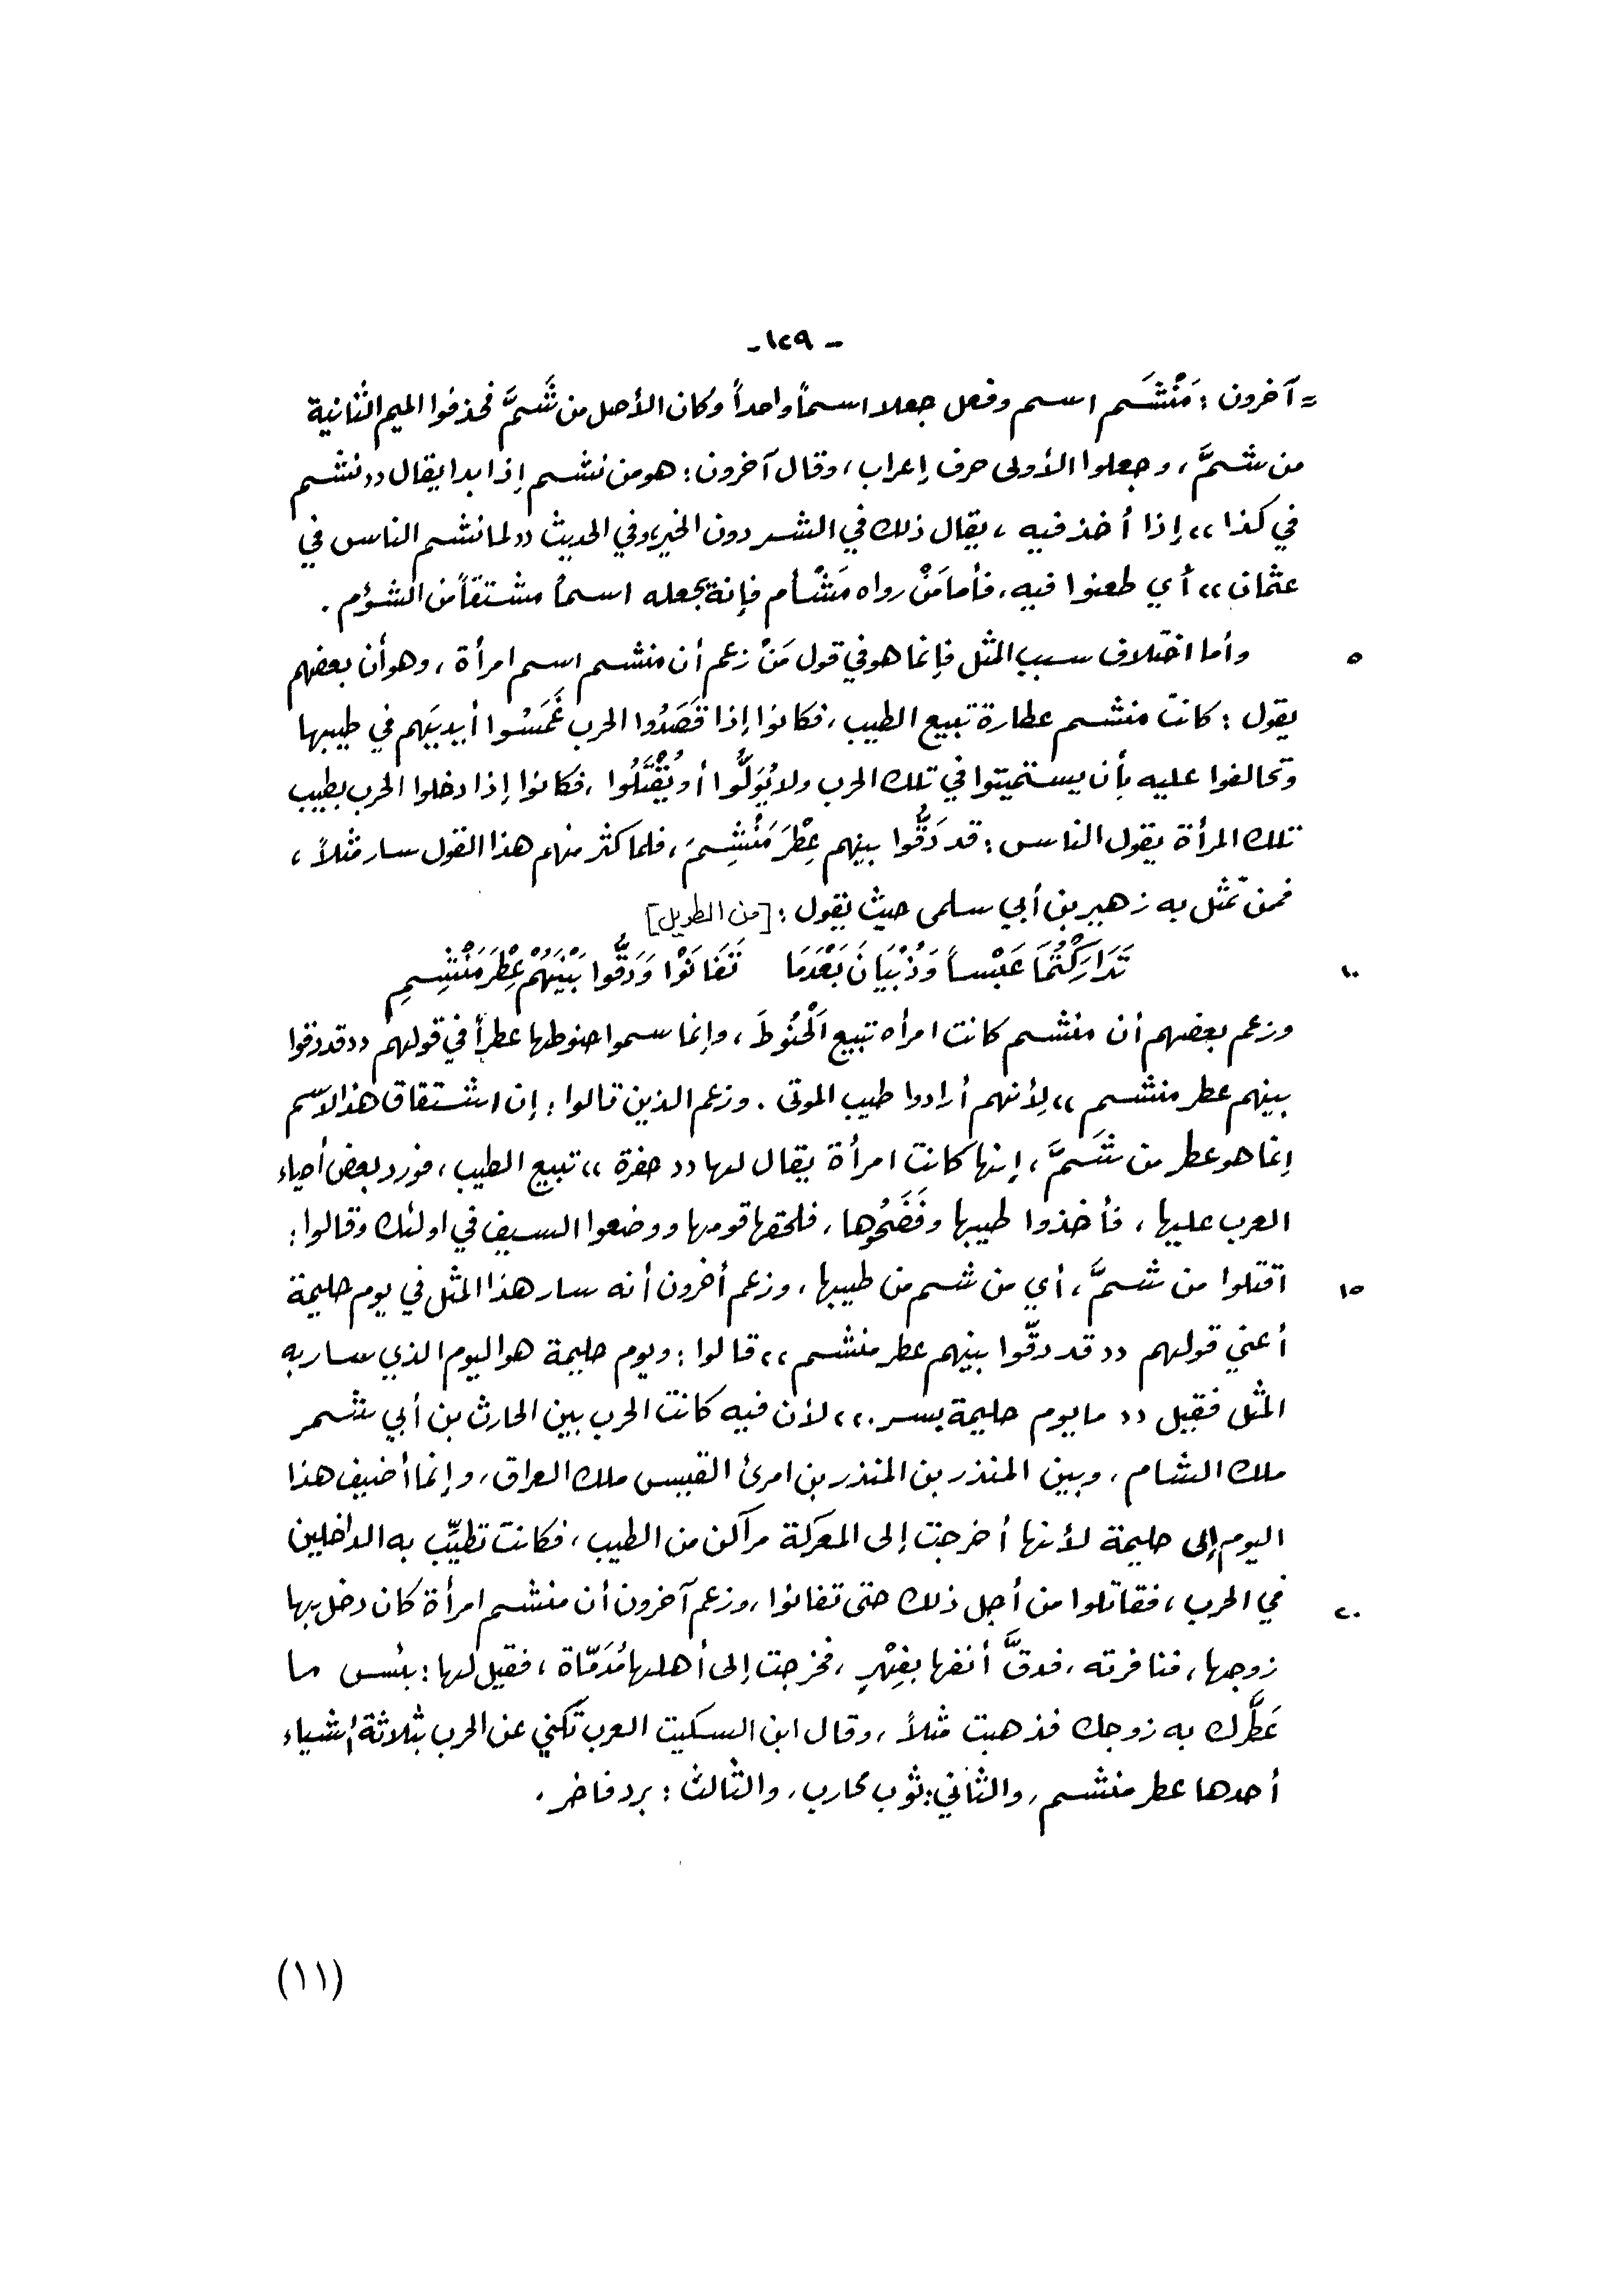 - ١٢٩ -
= آخرون : مَنْشَم اسم وفعل جعلا اسماً واحداً وكان الأصل من شَمَّ فحذفوا الميم الثانية
من شمَّ ، وجعلوا الأولى حرف إعراب ، وقال آخرون : هو من نشم إذا بدا يقال ,, نشم
في كذا ،، إذا أخذ فيه ، يقال ذلك في الشر دون الخير، وفي الحديث ,, لما نشم الناس في
عثمان ،، أي طعنوا فيه ، فأما مَنْ رواه مَشْأم فإنه يجعله اسماً مشتقاً من الشؤم .
٥ وأما اختلاف سبب المثل فإنما هو في قول مَنْ زعم أن منشم اسم امرأة ، وهو أن بعضهم
يقول : كانت منشم عطارة تبيع الطيب ، فكانوا إذا قَصَدُوا الحرب غَمَسُوا أيديَهم في طيبها
وتحالفوا عليه بأن يستميتوا في تلك الحرب ولا يُوَلُّوا أو يُقْتَلُوا ، فكانوا إذا دخلوا الحرب بطيب
تلك المرأة يقول الناس : قد دَقُّوا بينهم عِطْرَ مَنْشِمَ ، فلما كثر منهم هذا القول سار مثلاً ،
فمن تمثل به زهير بن أبي سلمى حيث يقول : [من الطويل]
١٠ تَدَارَكْتُمَا عَبْساً وَذُبْيَانَ بَعْدَمَا تَفَانَوْا وَدَقُّوا بَيْنَهُمْ عِطْرَ مَنْشِمِ
وزعم بعضهم أن منشم كانت امرأه تبيع اَلْحُنُوطَ ، وإنما سموا حنوطها عطراً في قولهم ,, قد دقوا
بينهم عطر منشم ،، لِأنهم أرادوا طيب الموتى . وزعم الذين قالوا : إن اشتقاق هذا الاسم
إنما هو عطر من شَمَّ ، إنها كانت امرأة يقال لها ,, حفرة ،، تبيع الطيب ، فورد بعض أحياء
العرب عليها ، فأخذوا طيبها وفَضَحُوها ، فلحقها قومها ووضعوا السيف في اولئك وقالوا :
١٥ اقتلوا من شمَّ ، أي من شم من طيبها ، وزعم أخرون أنه سار هذا المثل في يوم حليمة
أعني قولهم ,, قد دقّوا بينهم عطر منشم ،، قالوا : ويوم حليمة هو اليوم الذي سار به
المثل فقيل ,, ما يوم حليمة بسر . ،، لأن فيه كانت الحرب بين الحارث بن أبي شمر
ملك الشام ، وبين المنذر بن المنذر بن امرئ القيس ملك العراق ، وإنما أضيف هذا
اليوم إلى حليمة لأنها أخرجت إلى المعركة مراكن من الطيب ، فكانت تطيِّب به الداخلين
٢٠ في الحرب ، فقاتلوا من أجل ذلك حتى تفانوا ، وزعم آخرون أن منشم امرأة كان دخل بها
زوجها ، فنافرته ، فدقَّ أنفها بفِهْرٍ ، فخرجت إلى أهلها مُدَمّاة ، فقيل لها : بئس ما
عَطَّرك به زوجك فذهبت مثلاً ، وقال ابن السكيت العرب تكني عن الحرب بثلاثة أشياء
أحدها عطر منشم ، والثاني : ثوب محارب ، والثالث : برد فاخر .
(١١)